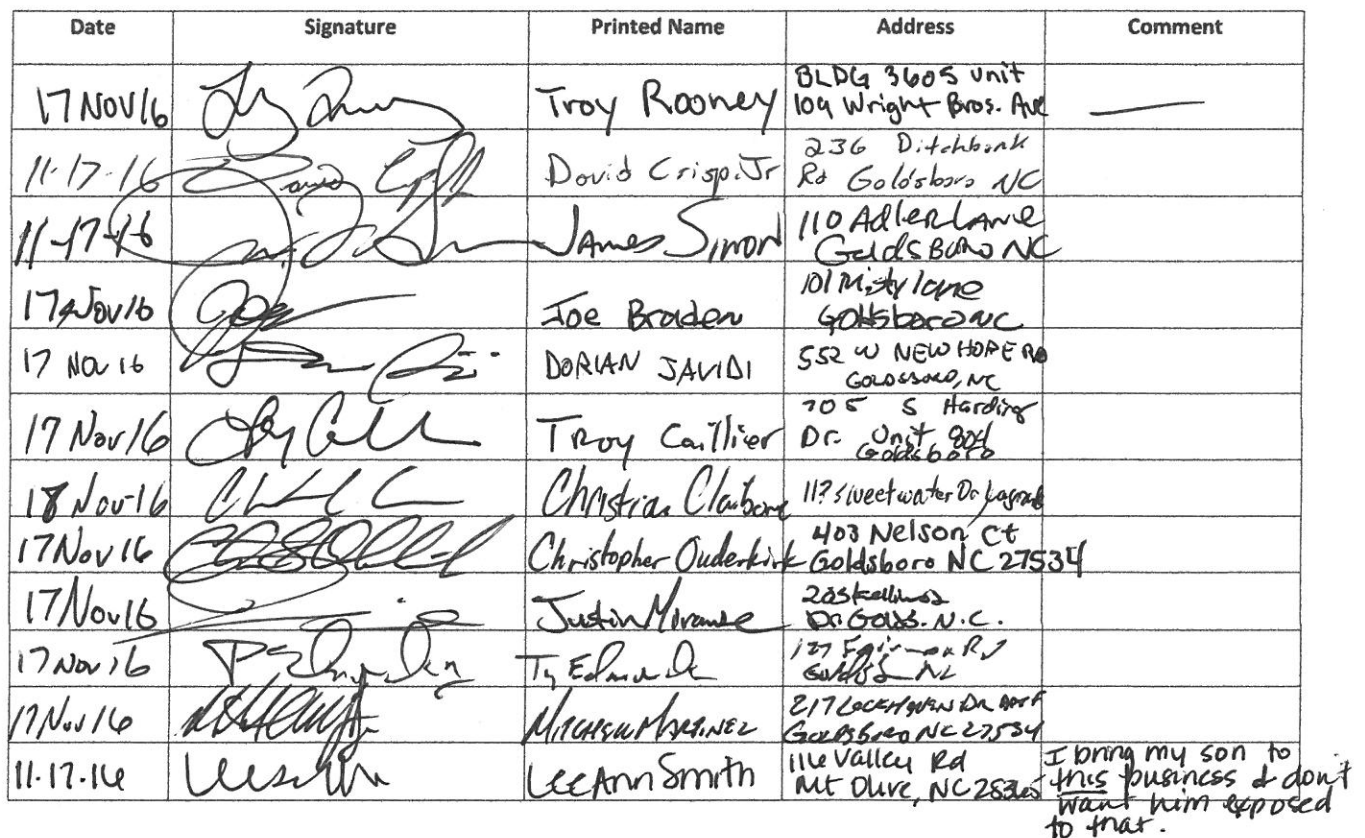 Date Signature Printed Name Address Comment
17 NOV 16 Troy Rooney BLDG 3605 unit
109 Wright Bros. Ave —
11-17-16 David Crisp Jr 236 Ditchbank
Rd Goldsboro NC
11-17-16 James Simon 110 Adler Lane
Goldsboro NC
17 Nov 16 Joe Braden 101 Misty lane
Goldsboro NC
17 Nov 16 DORIAN JAVIDI 552 W NEW HOPE RD
GOLDSBORO, NC
17 Nov 16 Troy Caillier 705 S Harding
Dr. Unit 804
Goldsboro
18 Nov 16 Christian Claiborne Sweetwater Dr
17 Nov 16 Christopher Ouderkirk 403 Nelson Ct
Goldsboro NC 27534
17 Nov 16 Justin
Dr. Golds. N.C.
17 Nov 16 Ty Rd
NC
17 Nov 16 MITCHELL MARTINEZ 217 LOCKHAVEN DR APT F
Goldsboro NC 27534
11-17-16 LeeAnn Smith 116 Valley Rd
Mt Olive, NC 28365
I bring my son to
this business & don't
want him exposed
to that.